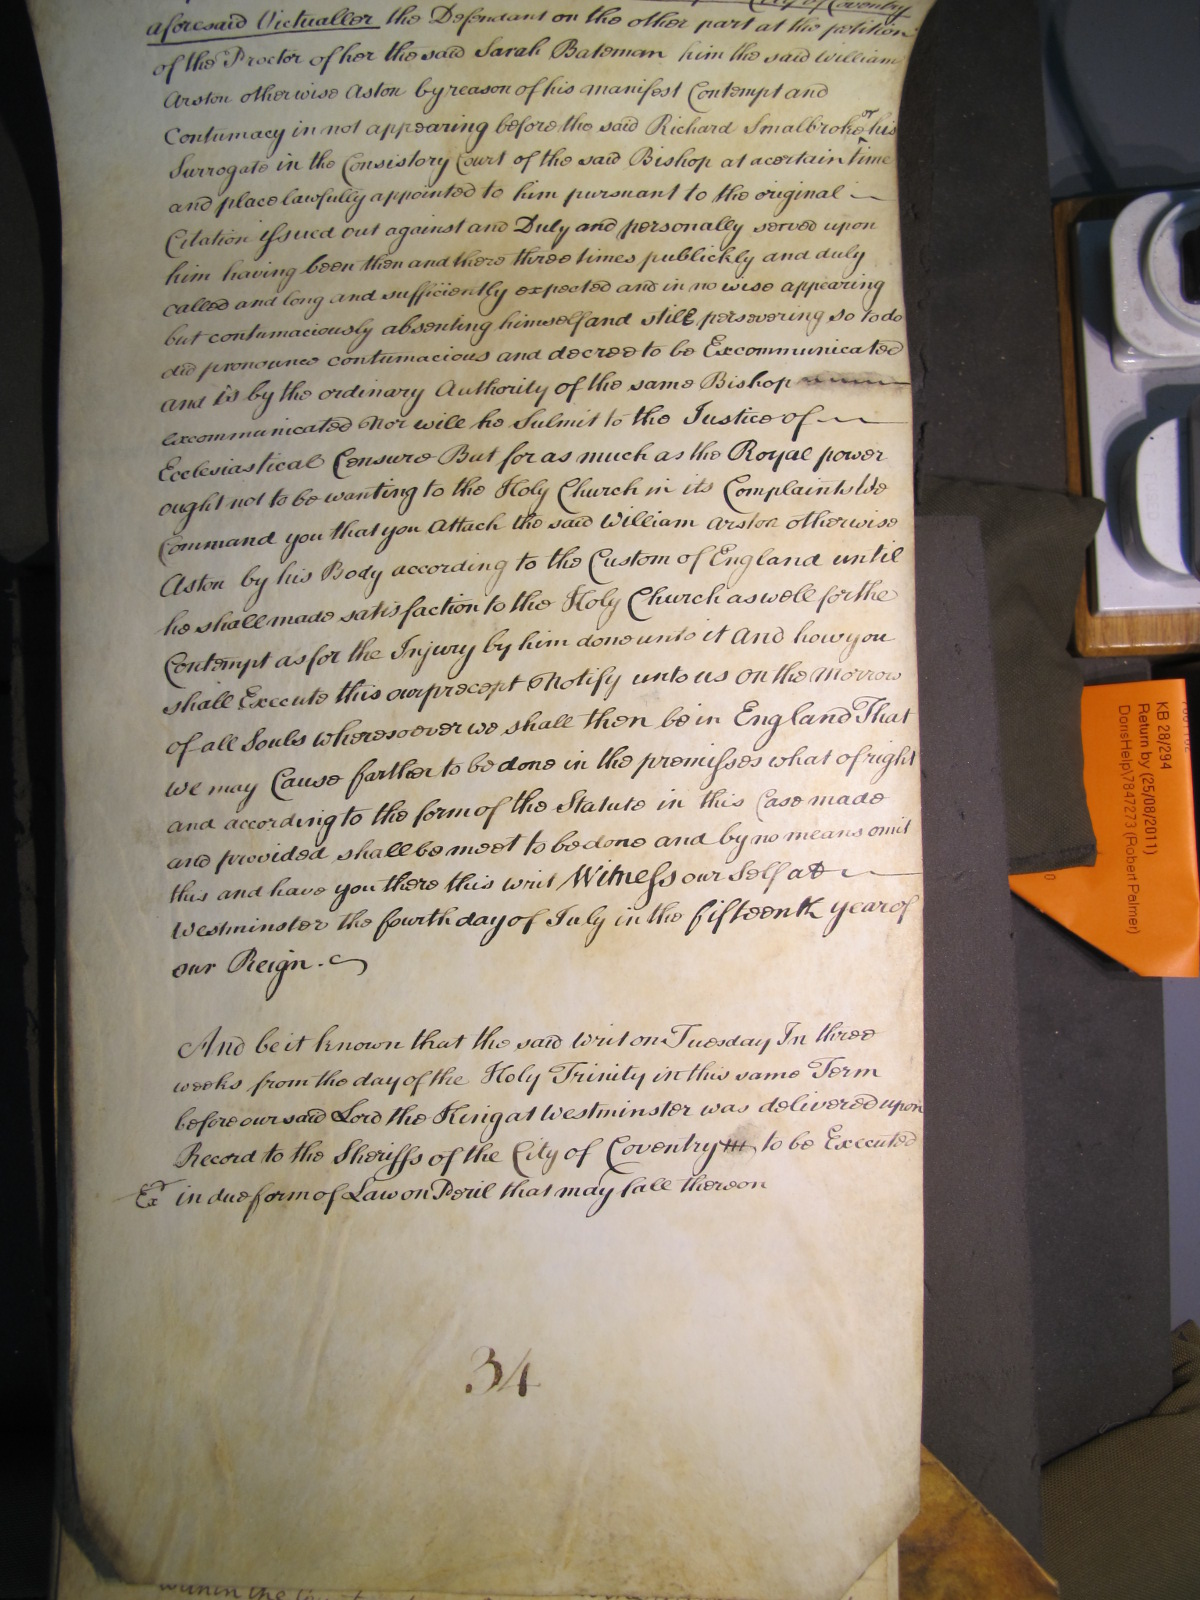 City of Coventry
aforesaid Victualler the Defendant on the other part at the petition
of the Proctor of her the said Sarah Bateman him the said William
Arston otherwise Aston by reason of his manifest Contempt and
Contumacy in not appearing before the said Richard Smalbroke or his
Surrogate in the Consistory Court of the said Bishop at a certain time
and place lawfully appointed to him pursuant to the original
Citation issued out against and Duly and personally served upon
him having been then and there three times publickly and duly
called and long and sufficiently expected and in no wise appearing
but contumaciously absenting himself and still persevering so to do
did pronounce contumacious and decree to be Excommunicated
and is by the ordinary Authority of the same Bishop
excommunicated Nor will he Submit to the Justice of
Ecclesiastical Censure But for as much as the Royal power
ought not to be wanting to the Holy Church in its Complaints We
Command you that you Attach the said William Arston otherwise
Aston by his Body according to the Custom of England until
he shall made satisfaction to the Holy Church as well for the
Contempt as for the Injury by him done unto it And how you
shall Execute this our precept Notify unto us On the Morrow
of all Souls wheresoever we shall then be in England That
we may Cause farther to be done in the premisses what of right
and according to the form of the Statute in this Case made
and provided shall be meet to be done and by no means omit
this and have you there this writ Witness our Self at
Westminster the fourth day of July in the fifteenth year of
our Reign.
And be it known that the said writ on Tuesday In three
weeks from the day of the Holy Trinity in this same Term
before our said Lord the King at Westminster was delivered upon
Record to the Sheriffs of the City of Coventry to be Executed
Exd in due form of Law on Peril that may fall thereon
34
within the
KB 28/294
Return by (25/08/2011)
DorisHelp\7847273 (Robert Palmer)